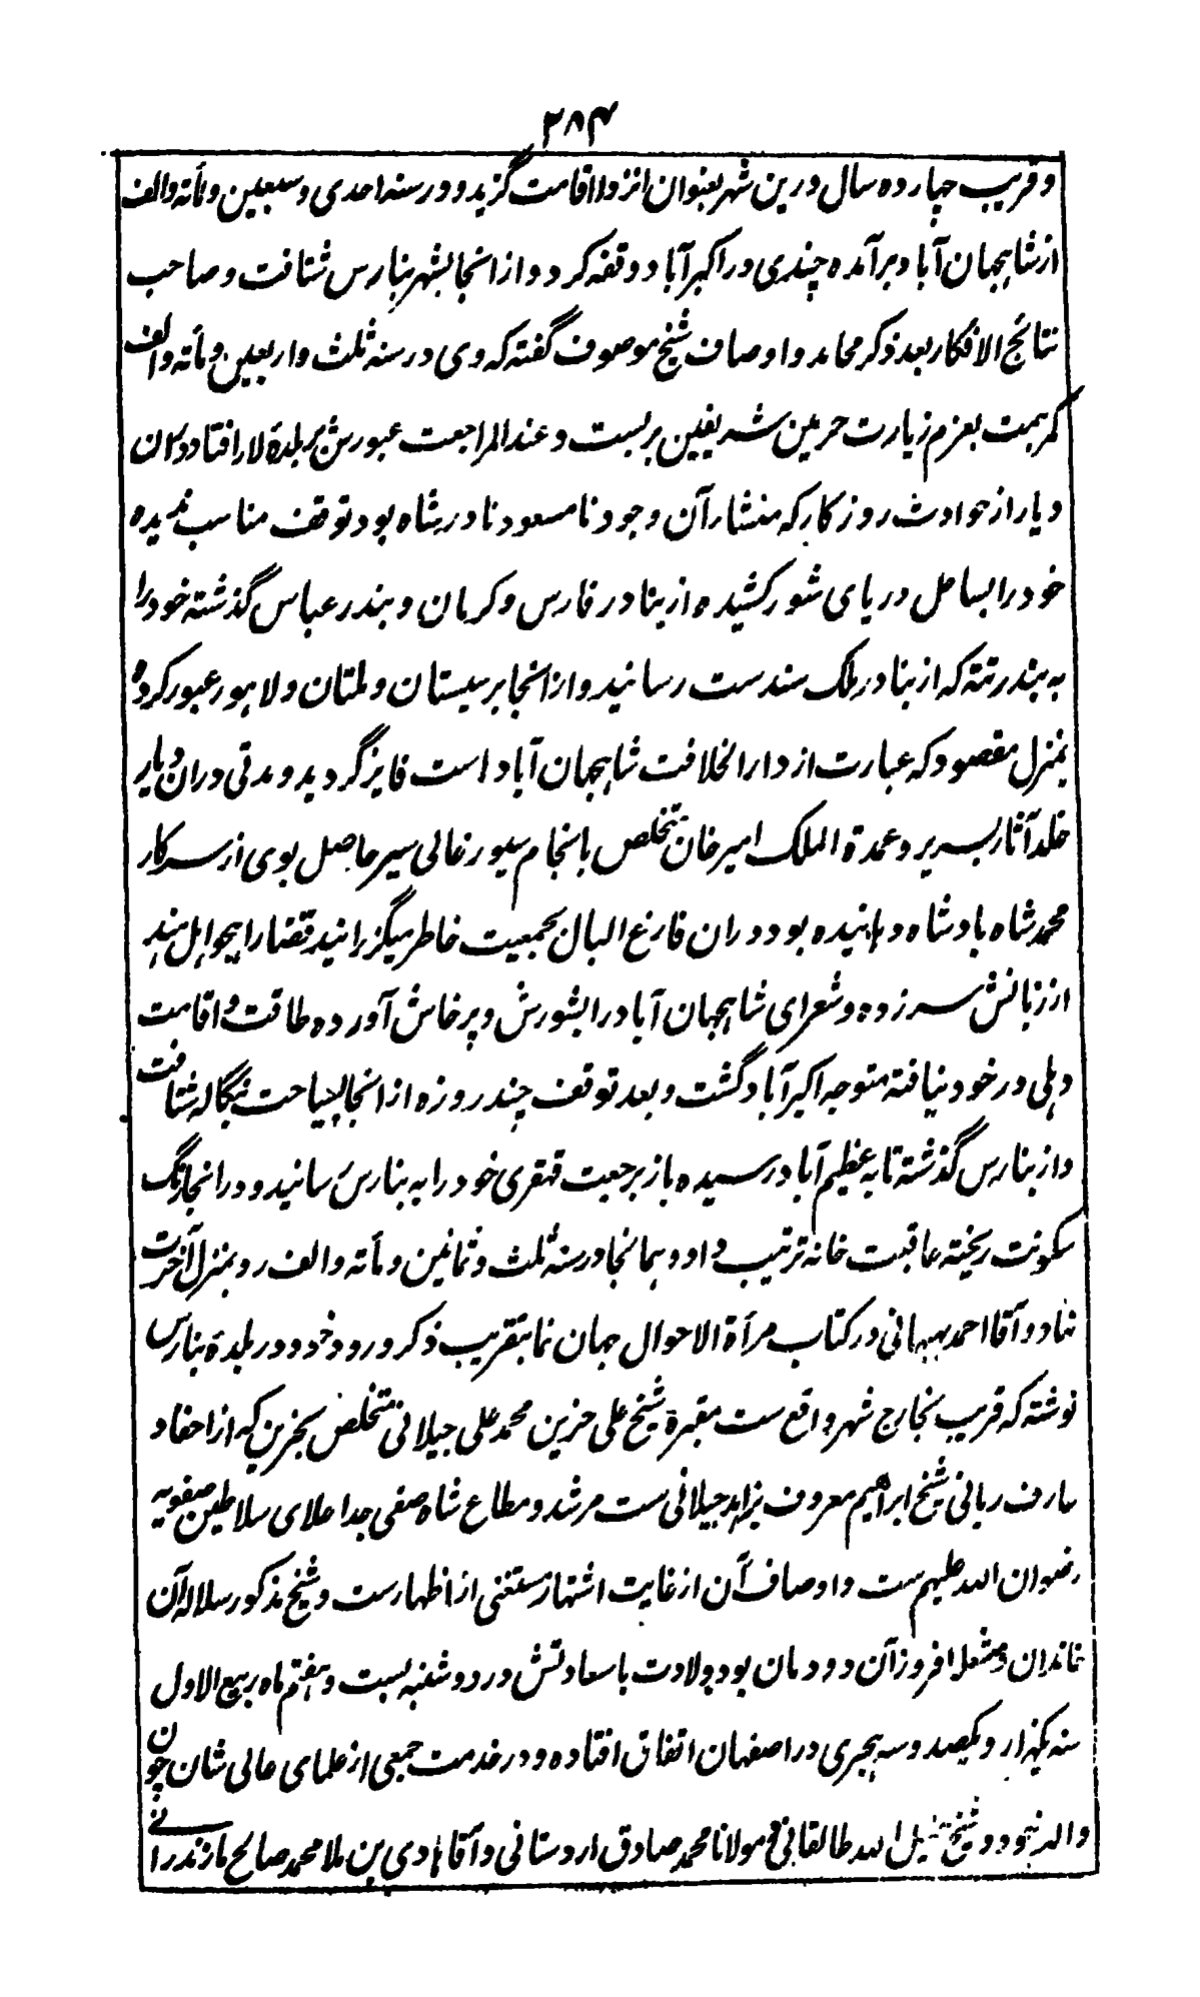 ۲۸۴
و قریب چهارده سال درین شهر بعنوان انزوا اقامت گزید و در سنه احدی و سبعین و مأته والف
از شاهجهان آباد برآمده چندی در اکبرآباد وقفه کرد و از انجا بشهر بنارس شتافت و صاحب
نتائج الافکار بعد ذکر محامد و اوصاف شیخ موصوف گفته که وی در سنه ثلث و اربعین و مأته والف
کمر همت بعزم زیارت حرمین شریفین بر بست و عند المراجعت عبورش بر بلدۀ لار افتاد دران
دیار از حوادث روزکار که منشار آن وجود نامسعود نادرشاه بود توقف مناسب ندیده
خود را بساحل دریای شور کشیده از بنادر فارس و کرمان و بندر عباس گذشته خود را
به بندر تته که از بنادر ملک سندست رسانید و از انجا بر سیستان و ملتان و لاهور عبور کرده
بمنزل مقصود که عبارت از دارالخلافت شاهجهان آباد است فایز گردید و مدتی دران دیار
خلد آثار بسر برد و عمدة الملک امیر خان متخلص بانجام سیورغالی سیر حاصل بوی از سرکار
محمد شاه بادشاه دهانیده بود دران فارغ البال بجمعیت خاطر میگزرانید قضا را هجو اهل هند
از زبانش سر زده و شعرای شاهجهان آباد را بشورش و پرخاش آورده طاقت اقامت
دهلی در خود نیافته متوجه اکبرآباد گشت و بعد توقف چند روزه از انجا بسیاحت بنگاله شتافت
و از بنارس گذشته تا به عظیم آباد رسیده باز برجعت قهقری خود را به بنارس رسانید و در انجا رنگ
سکونت ریخته عاقبت خانه ترتیب داد و همانجا در سنه ثلث و ثمانین و مأته والف رو بمنزل آخرت
نهاد و آقا احمد بهبهانی در کتاب مرأة الاحوال جهان نما بتقریب ذکر ورود خود در بلدۀ بنارس
نوشته که قریب بخارج شهر واقع ست مقبرۀ شیخ علی حزین محمد علی جیلانی متخلص بحزین که از احفاد
عارف ربانی شیخ ابراهیم معروف بزاهد جیلانی ست مرشد و مطاع شاه صفی جد اعلای سلاطین صفویه
رضوان الله علیهم ست و اوصاف آن از غایت اشتهار مستغنی از اظهارست و شیخ مذکور سلاله آن
خاندان و مشعل افروز آن دودمان بود ولادت با سعادتش در دوشنبه بست و هفتم ماه ربیع الاول
سنه یکهزار و یکصد و سه هجری در اصفهان اتفاق افتاده و در خدمت جمعی از علمای عالی شان چون
والد خود و شیخ خلیل الله طالقانی و مولانا محمد صادق اردستانی و آقا هادی بن ملا محمد صالح مازندرانی